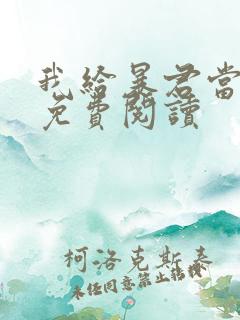 我給暴君當
免費閱讀
柯洛克斯泰
未經同意禁止轉載